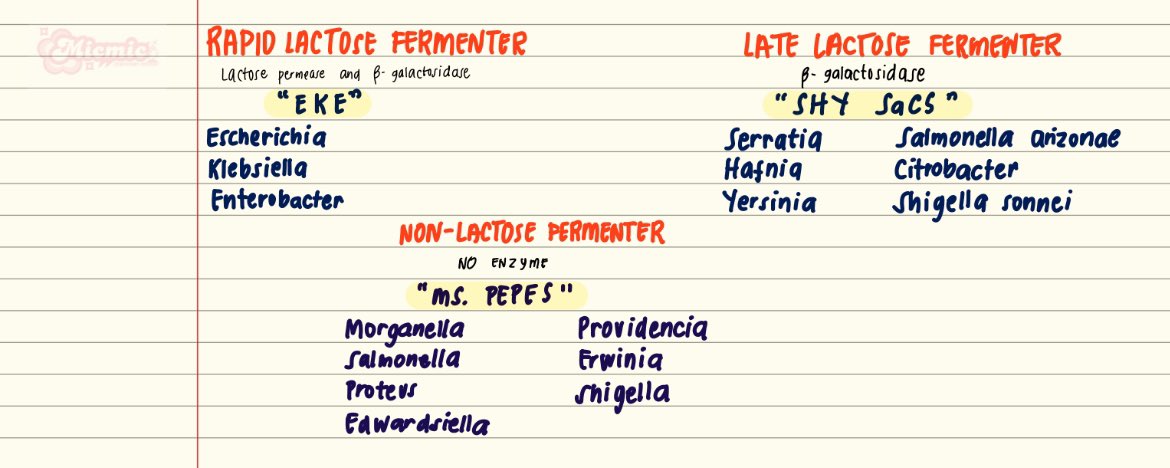 Micmic
RAPID LACTOSE FERMENTER
Lactose permease and β-galactosidase
"EKE"
Escherichia
Klebsiella
Enterobacter
LATE LACTOSE FERMENTER
β-galactosidase
"SHY SaCS"
Serratia
Hafnia
Yersinia
Salmonella arizonae
Citrobacter
Shigella sonnei
NON-LACTOSE PERMENTER
NO ENZYME
"MS. PEPES"
Morganella
Salmonella
Proteus
Edwardsiella
Providencia
Erwinia
Shigella